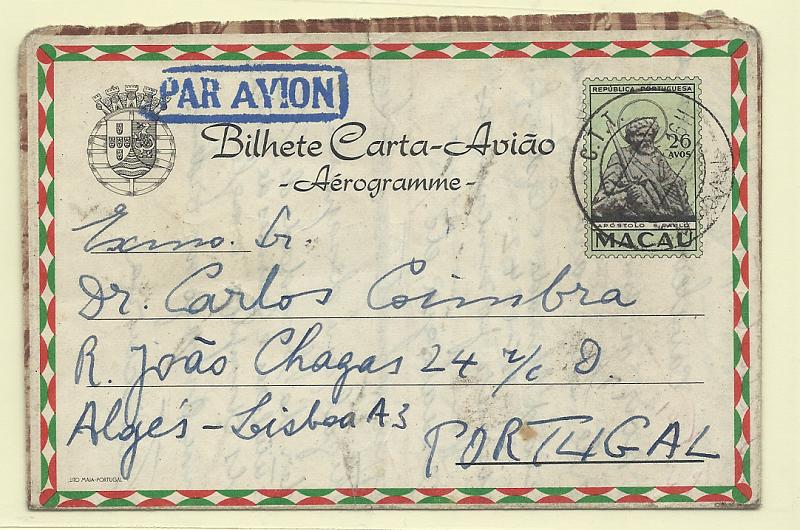 PAR AVION
Bilhete Carta-Avião
-Aérogramme-
REPÚBLICA PORTUGUESA
26
AVOS
APÓSTOLO S. PAULO
MACAU
C.T.T.
Exmo. Sr.
Dr. Carlos Coimbra
R. João Chagas 24 r/c D.
Algés-Lisboa A3
PORTUGAL
LITO MAIA-PORTUGAL